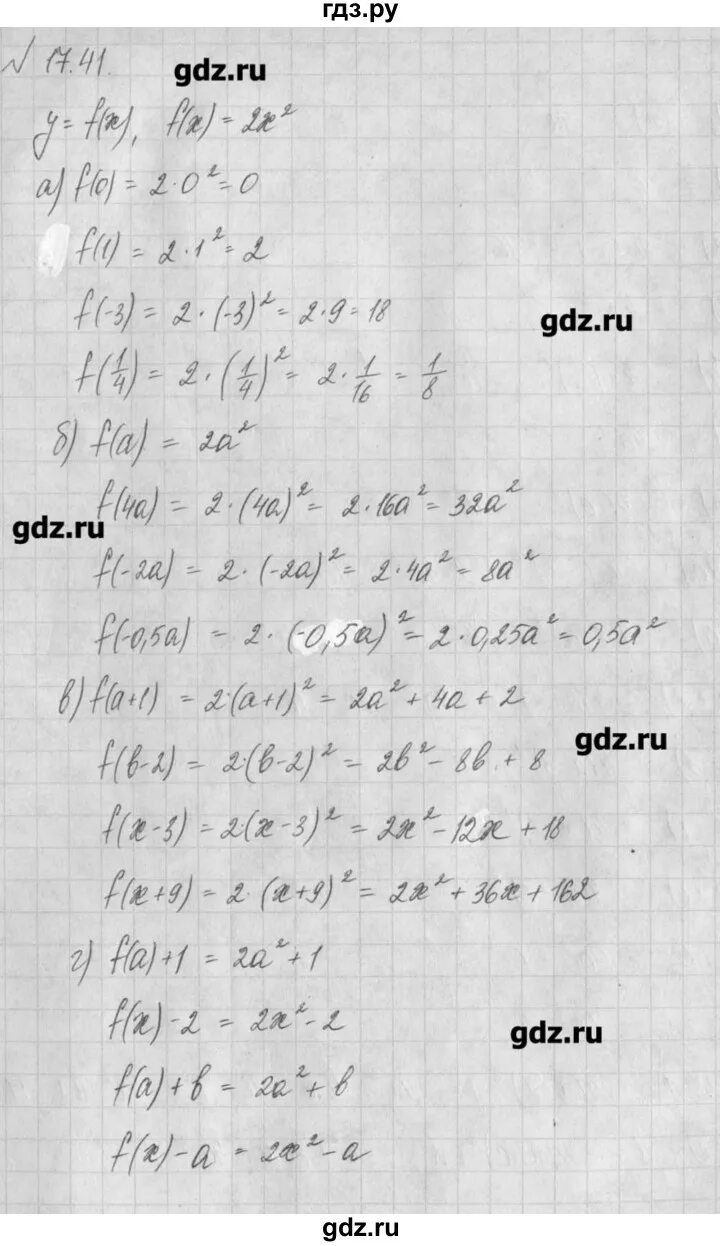 гдз.ру
№ 17.41.
gdz.ru
y = f(x), f(x) = 2x²
а) f(0) = 2·0² = 0
f(1) = 2·1² = 2
f(-3) = 2·(-3)² = 2·9 = 18
gdz.ru
f(1/4) = 2·(1/4)² = 2·1/16 = 1/8
б) f(a) = 2a²
f(4a) = 2·(4a)² = 2·16a² = 32a²
gdz.ru
f(-2a) = 2·(-2a)² = 2·4a² = 8a²
f(-0,5a) = 2·(-0,5a)² = 2·0,25a² = 0,5a²
в) f(a+1) = 2·(a+1)² = 2a² + 4a + 2
gdz.ru
f(b-2) = 2·(b-2)² = 2b² - 8b + 8
f(x-3) = 2·(x-3)² = 2x² - 12x + 18
f(x+9) = 2·(x+9)² = 2x² + 36x + 162
г) f(a)+1 = 2a² + 1
f(x)-2 = 2x² - 2
gdz.ru
f(a)+b = 2a² + b
f(x)-a = 2x² - a
gdz.ru